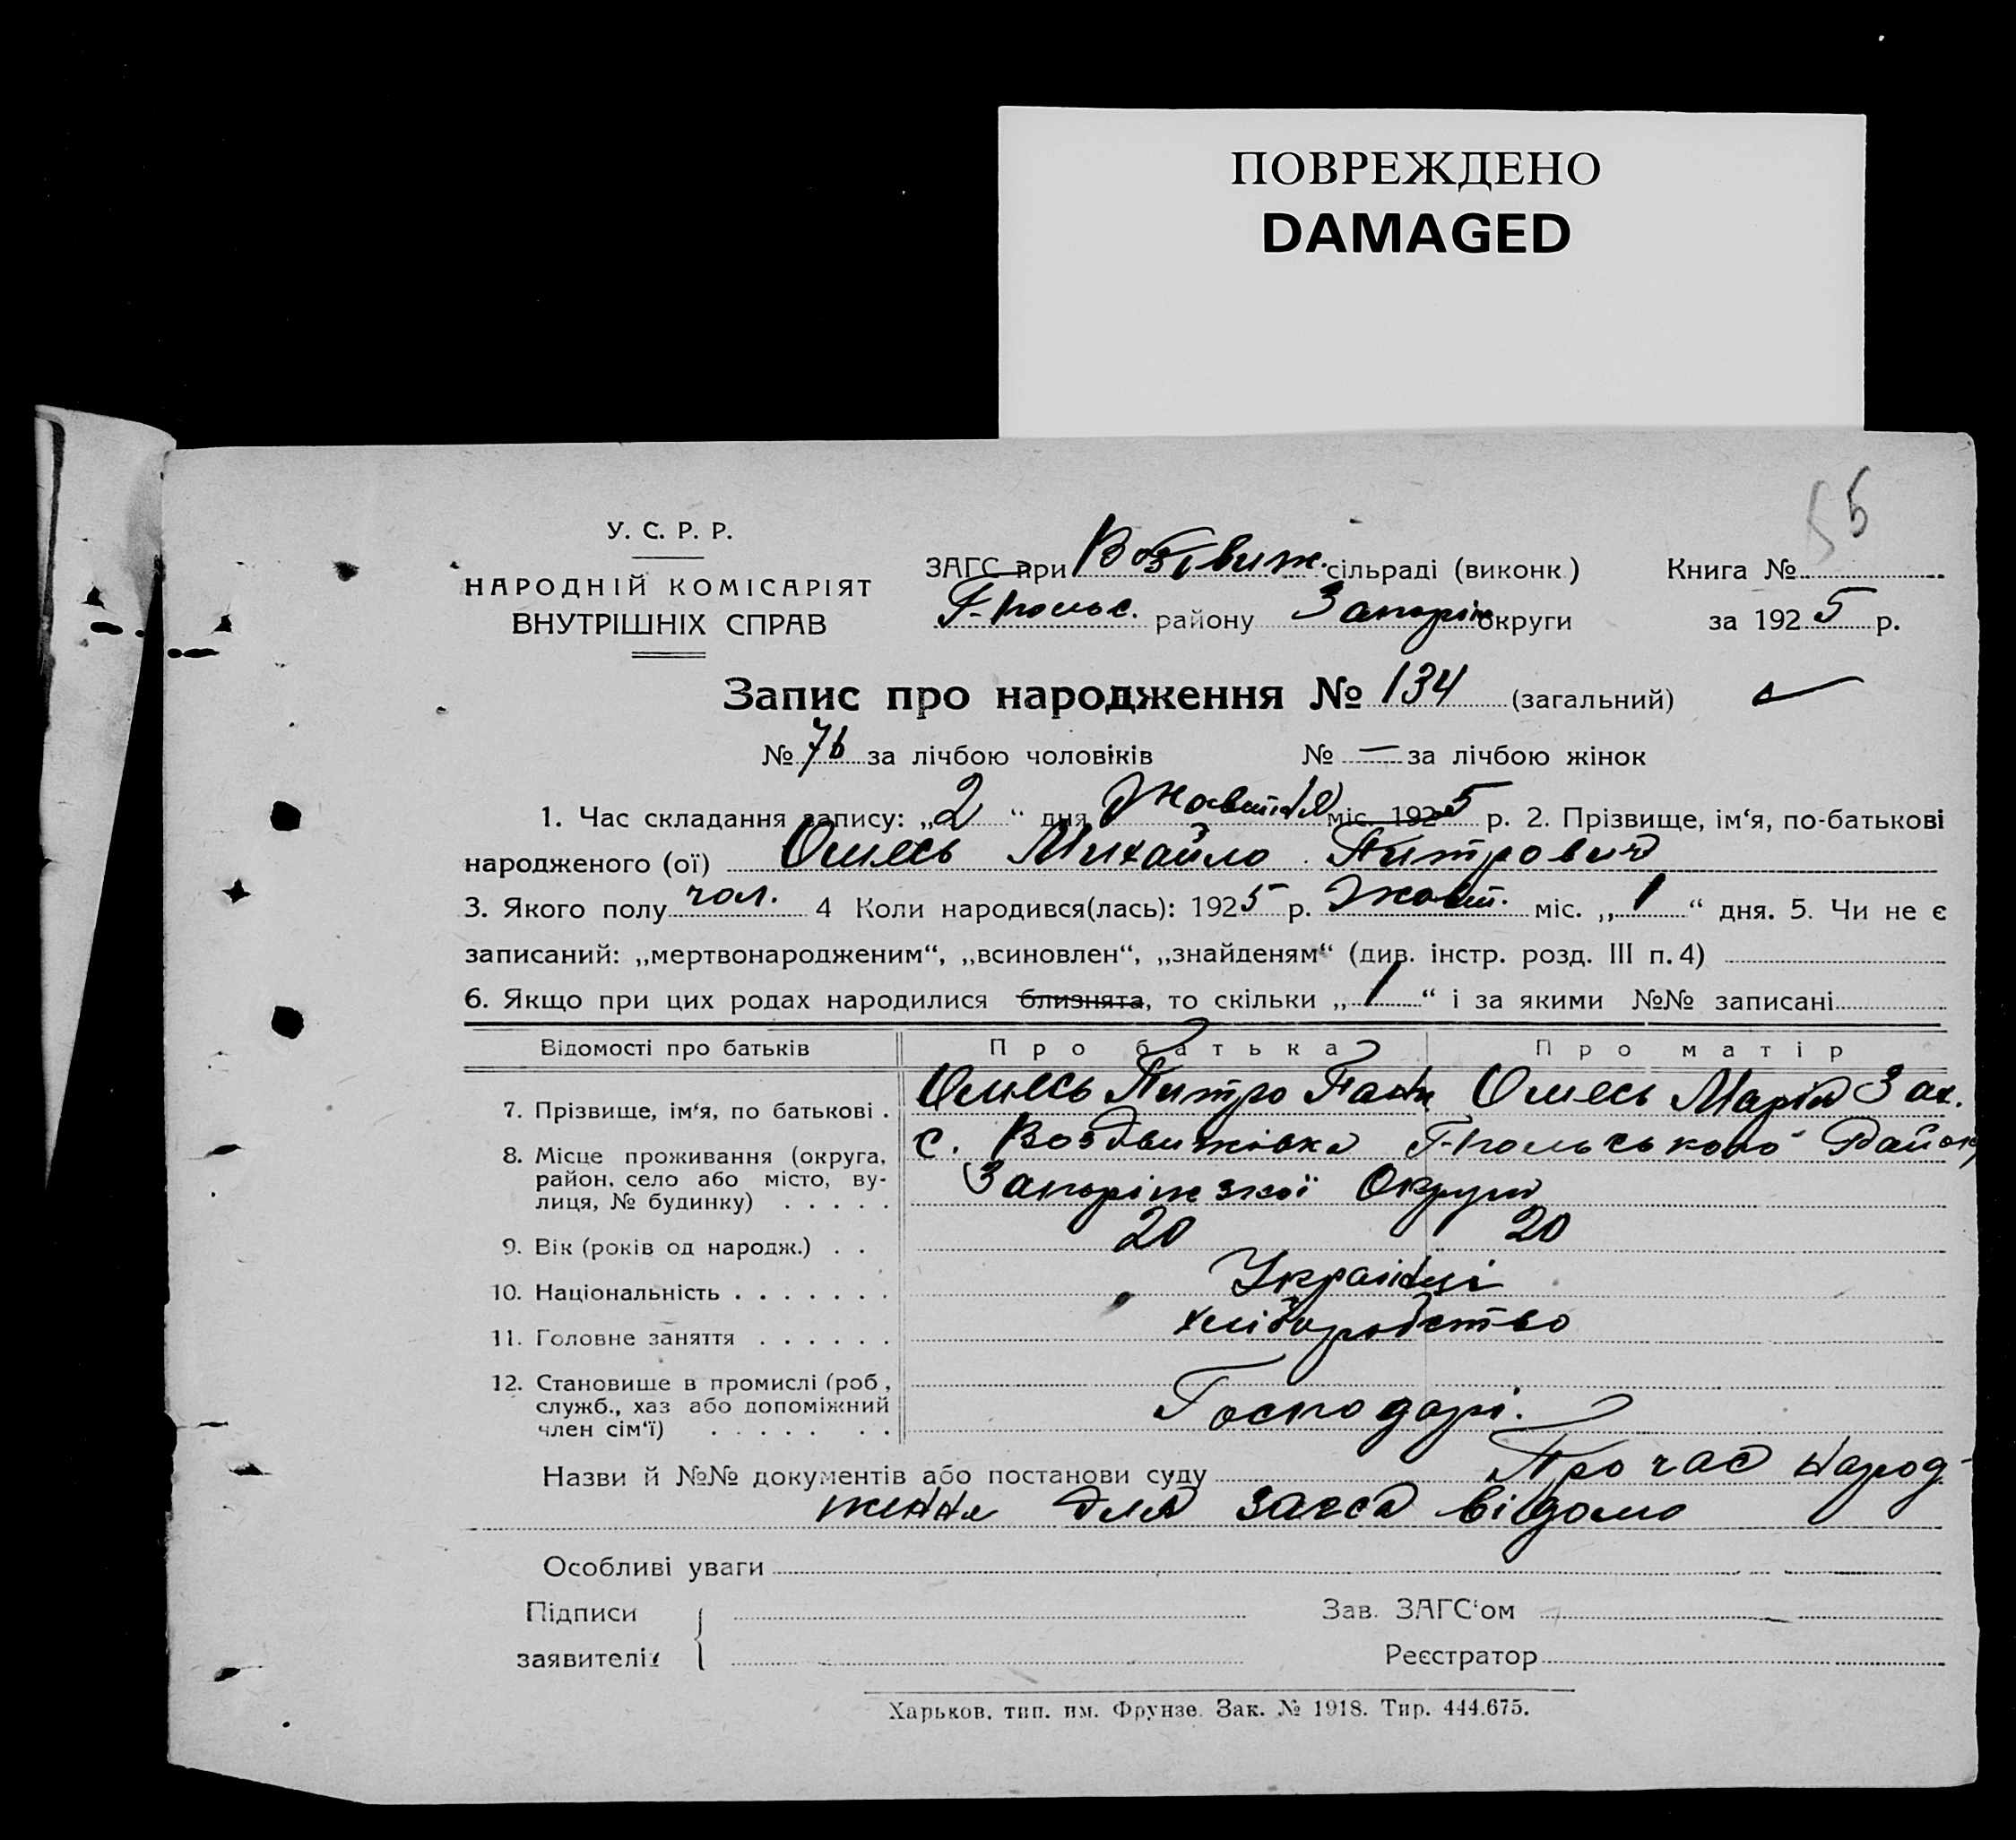 ПОВРЕЖДЕНО
DAMAGED
55
У. С. Р. Р.
НАРОДНІЙ КОМІСАРІЯТ
ВНУТРІШНІХ СПРАВ
ЗАГС при Воздвиж. сільраді (виконк.)
Г-Польс. району Запоріж округи
Книга №
за 1925 р.
Запис про народження № 134 (загальний)
№ 76 за лічбою чоловіків № — за лічбою жінок
1. Час складання запису: „2“ дня Жовтня міс. 1925 р. 2. Прізвище, ім‘я, по-батькові
народженого (ої) Омесь Михайло Питрович
3. Якого полу чол. 4 Коли народився(лась): 1925 р. Жовт. міс. „1“ дня. 5. Чи не є
записаний: „мертвонародженим“, „всиновлен“, „знайденям“ (див. інстр. розд. III п. 4)
6. Якщо при цих родах народилися близнята, то скільки „1“ і за якими №№ записані
Відомості про батьків Про батька Про матір
7. Прізвище, ім‘я, по батькові . Омесь Питро Омесь Марія Зах.
8. Місце проживання (округа, район, село або місто, вулиця, № будинку) . . . . . с. Воздвижівка Г-Польського Району
Запоріжзкої Округи
9. Вік (років од народж.) . . 20 20
10. Національність . . . . . . . Українці
11. Головне заняття . . . . . . хліборобство
12. Становище в промислі (роб., служб., хаз або допоміжний член сім‘ї) . . . . . . . Господарі.
Назви й №№ документів або постанови суду Про час народ-
ження для загса відомо
Особливі уваги
Підписи Зав. ЗАГС‘ом
заявителів Реєстратор
Харьков, тип. им. Фрунзе. Зак. № 1918. Тир. 444.675.